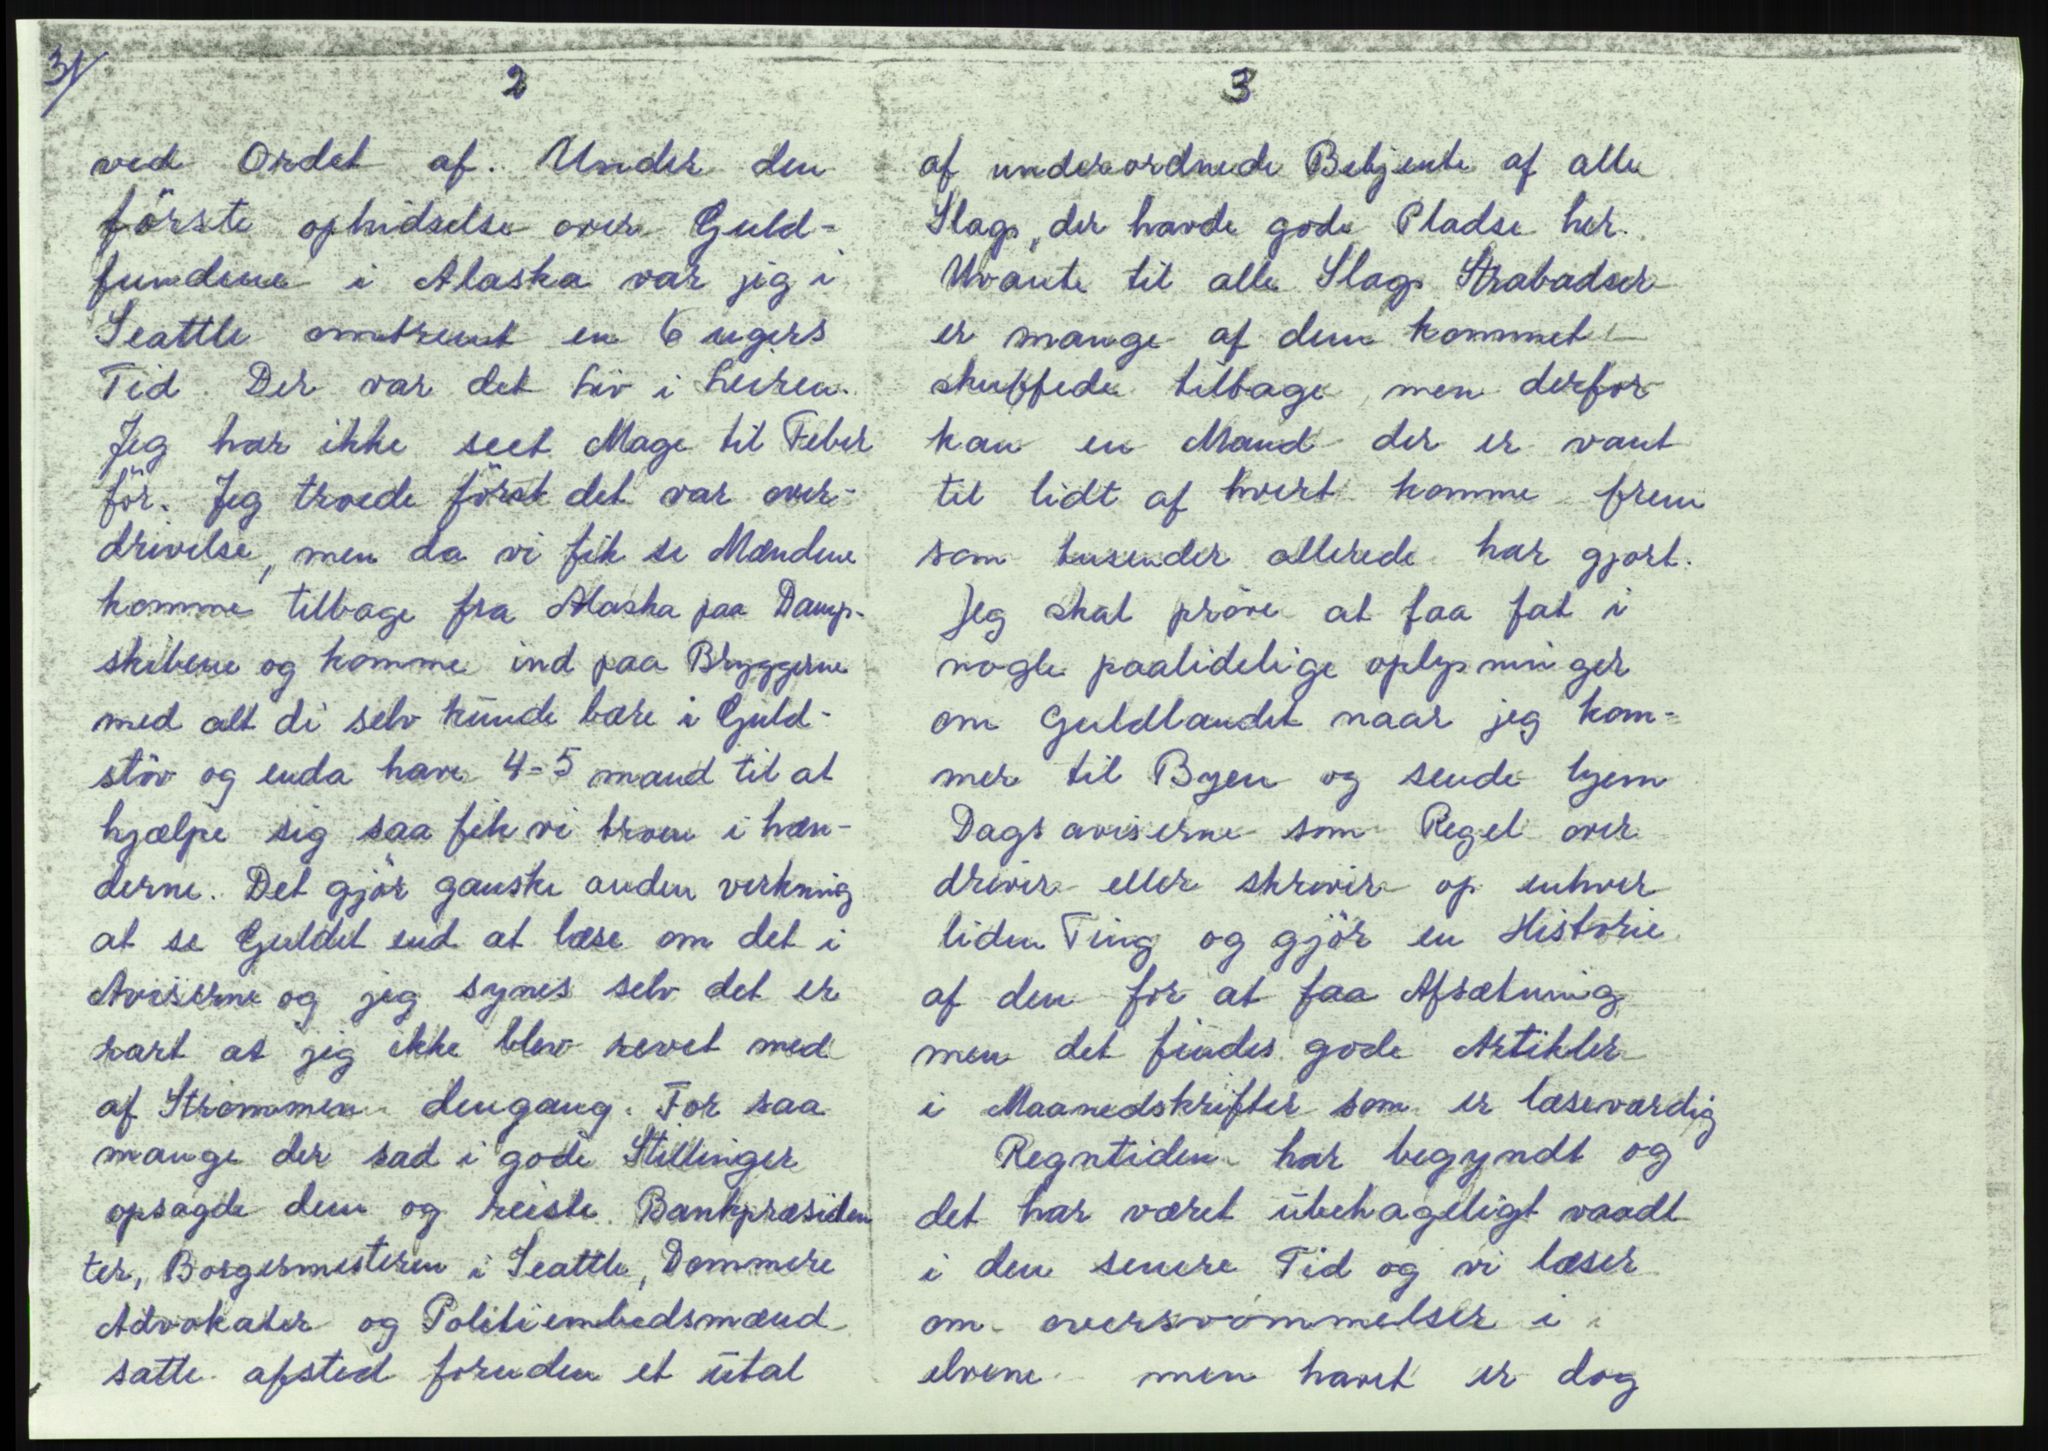 3/
2
ved Ordet af. Under den
förste ophidselse over Guld-
fundene i Alaska var jeg i
Seattle omtrent en 6 ugers
Tid. Der var det Liv i Leiren.
Jeg har ikke seet Mage til Feber
för. Jeg troede först det var over-
drivelse, men da vi fik se Mændene
komme tilbage fra Alaska paa Damp-
skibene og komme ind paa Bryggerne
med alt di selv kunde bære i Guld-
stöv og enda have 4-5 mand til at
hjælpe sig saa fik vi troen i hæn-
derne. Det gjör ganske anden virkning
at se Guldet end at læse om det i
Aviserne og jeg synes selv det er
rart at jeg ikke blev revet med
af Strømmen dengang. For saa
mange der sad i gode Stillinger
opsagde dem og reiste. Bankpræsiden
ter, Borgermesteren i Seattle, Dommere
Advokater og Politiembedsmænd
satte afsted foruden et utal
3
af underordnede Betjente af alle
Slags, der havde gode Pladse her.
Uvante til alle Slags Strabadser
er mange af dem kommet
skuffede tilbage men derfor
kan en Mand der er vant
til lidt af hvert komme frem
som tusender allerede har gjort.
Jeg skal pröve at faa fat i
nogle paalidelige oplysninger
om Guldlandet naar jeg kom-
mer til Byen og sende hjem
Dags aviserne som Regel over
driver eller skrever op enhver
liden Ting og gjör en Historie
af den for at faa Afsætning
men det findes gode Artikler
i Maanedskrifter som er læseværdig
Regntiden har begyndt og
det har været ubehageligt vaadt
i den senere Tid og vi læser
om oversvömmelser i
elvene men havet er dog